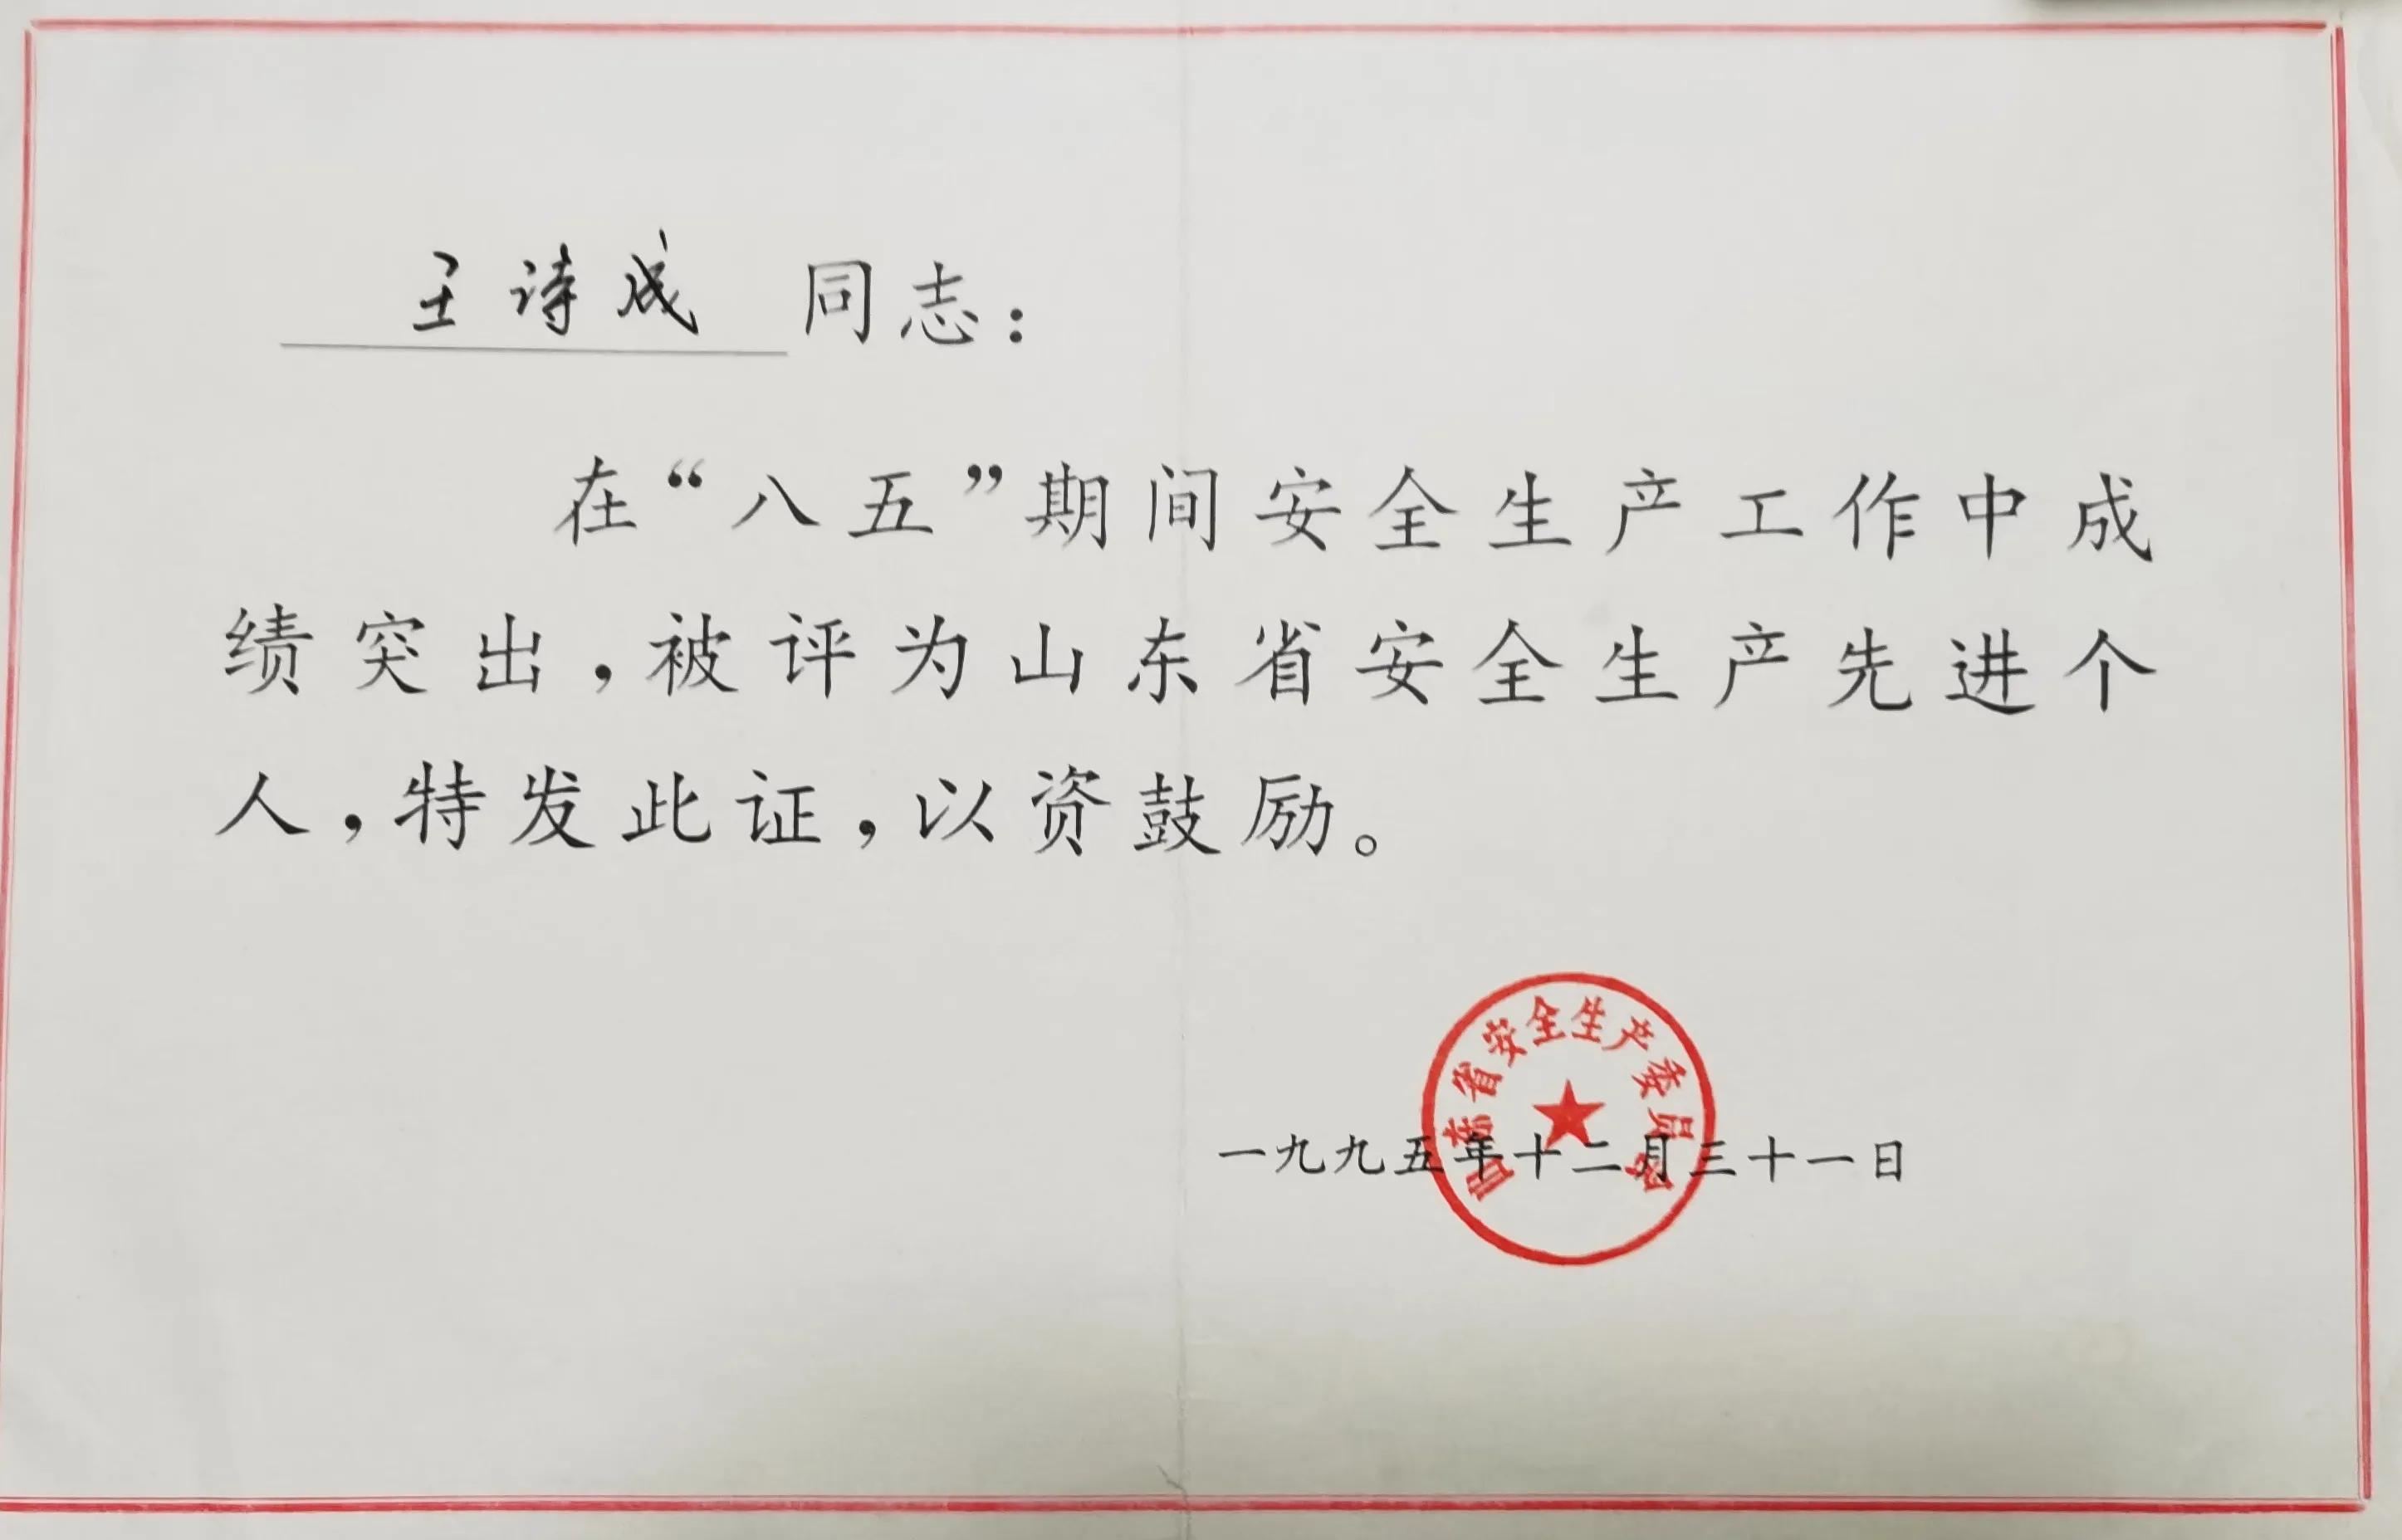 王诗成 同志：
在“八五”期间安全生产工作中成
绩突出，被评为山东省安全生产先进个
人，特发此证，以资鼓励。
山东省安全生产委员会
一九九五年十二月三十一日